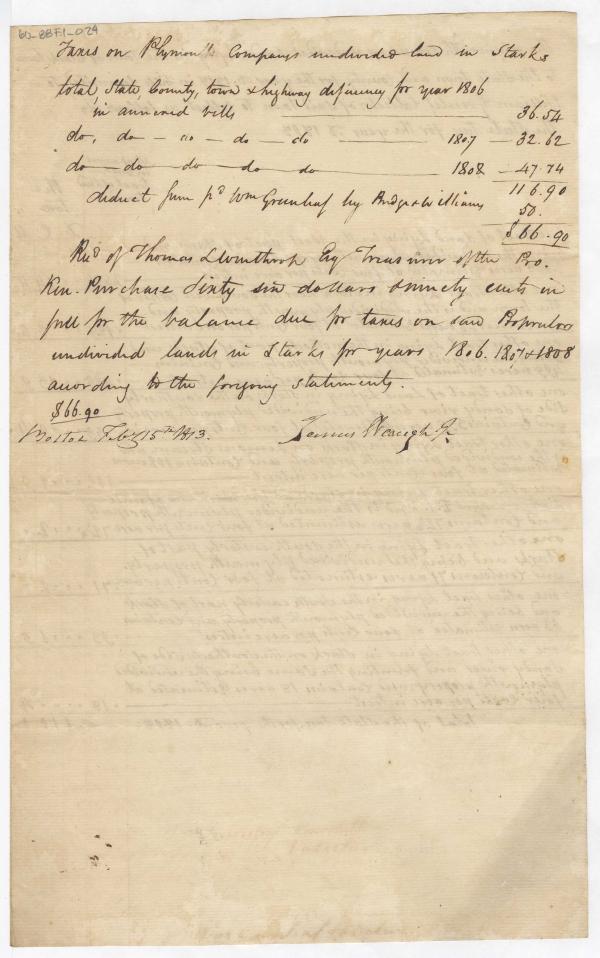 60-BBF1-029
Taxes on Plymouth Companys undivided land in Starks
total, State County, town & highway deficiency for year 1806
in annexed bills 36.54
do, do — do — do — do 1807 — 32.62
do — do do do do 1808 — 47.74
116.90
deduct sum pd Wm Greenleaf by Bridge & Williams 50.
$66.90
Recd of Thomas L Winthrop Esq Treasurer of the Pro.
Ken. Purchase Sixty six dollars & ninety cents in
full for the balance due for taxes on said Proprietors
undivided lands in Starks for years 1806. 1807 & 1808
according to the forgoing statements.
$66.90
Boston Feby 15th 1813. James Waugh Jr